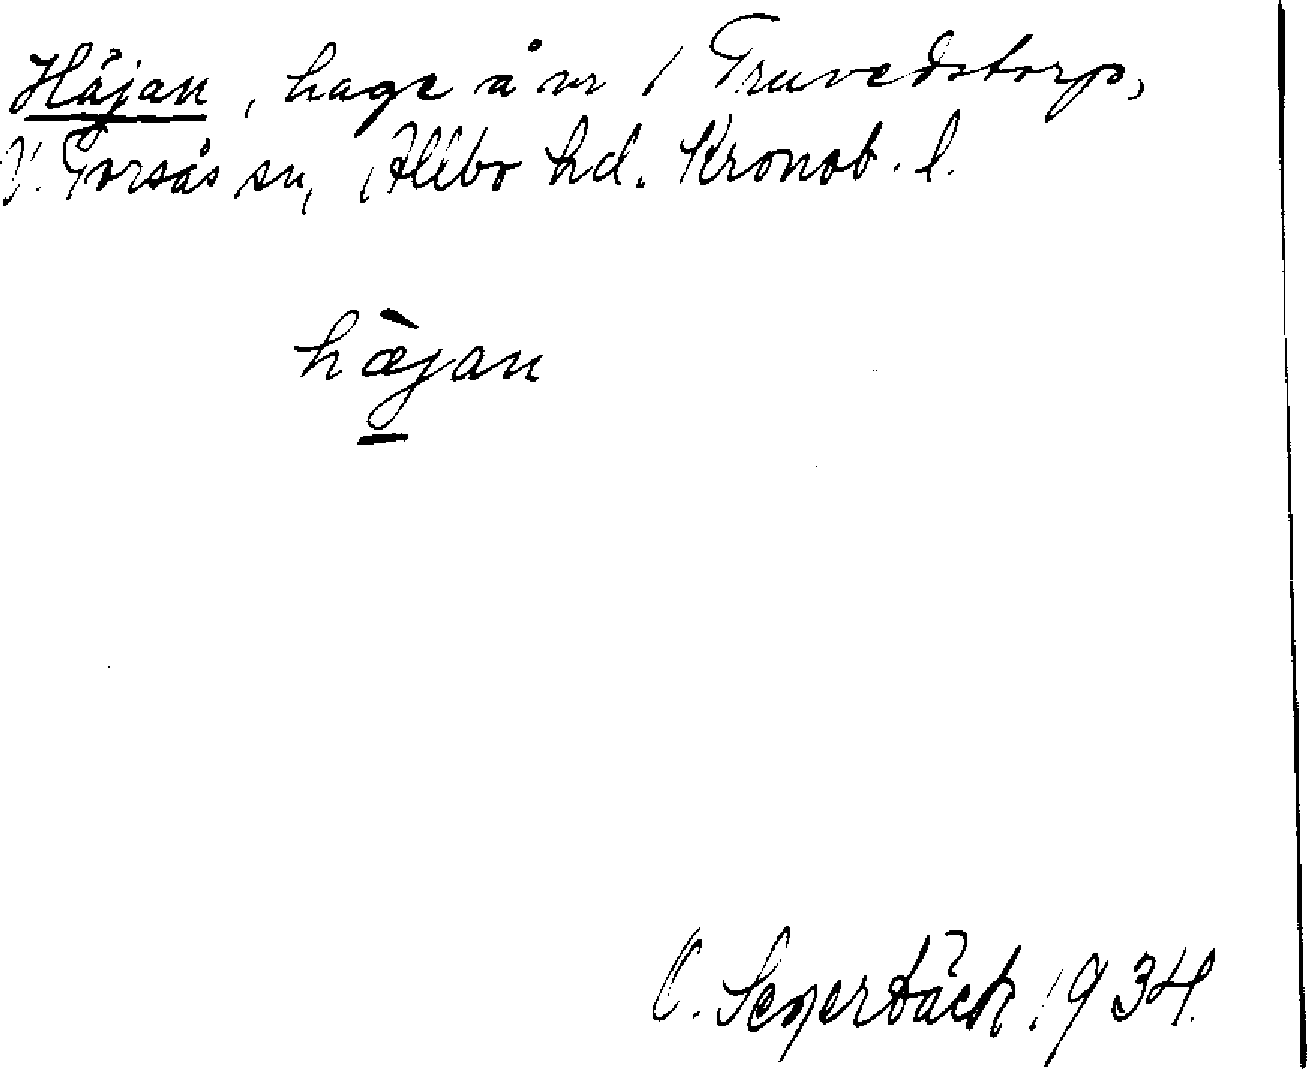 Häjan, hage å nr 1 Truvedstorp,
V. Torsås sn, Allbo hd. Kronob. l.
hæ̀jan
C. Segerbäck 1934.